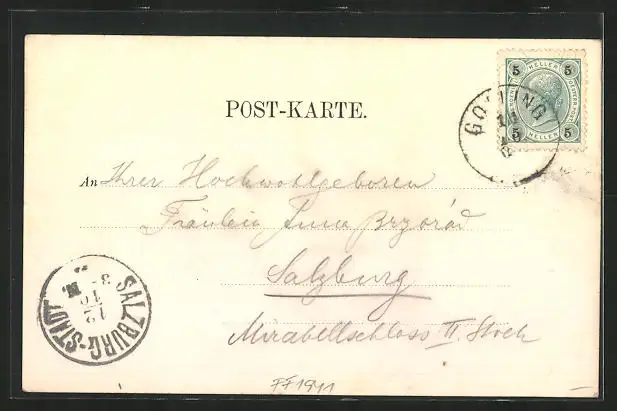 POST-KARTE.
5 HELLER 5
5 HELLER 5
GOLLING
An Ihrer Hochwohlgeboren
Fräulein Anna Brzorád
Salzburg
Mirabellschloss II. Stock
SALZBURG-STADT
12
10
3-
FF1941